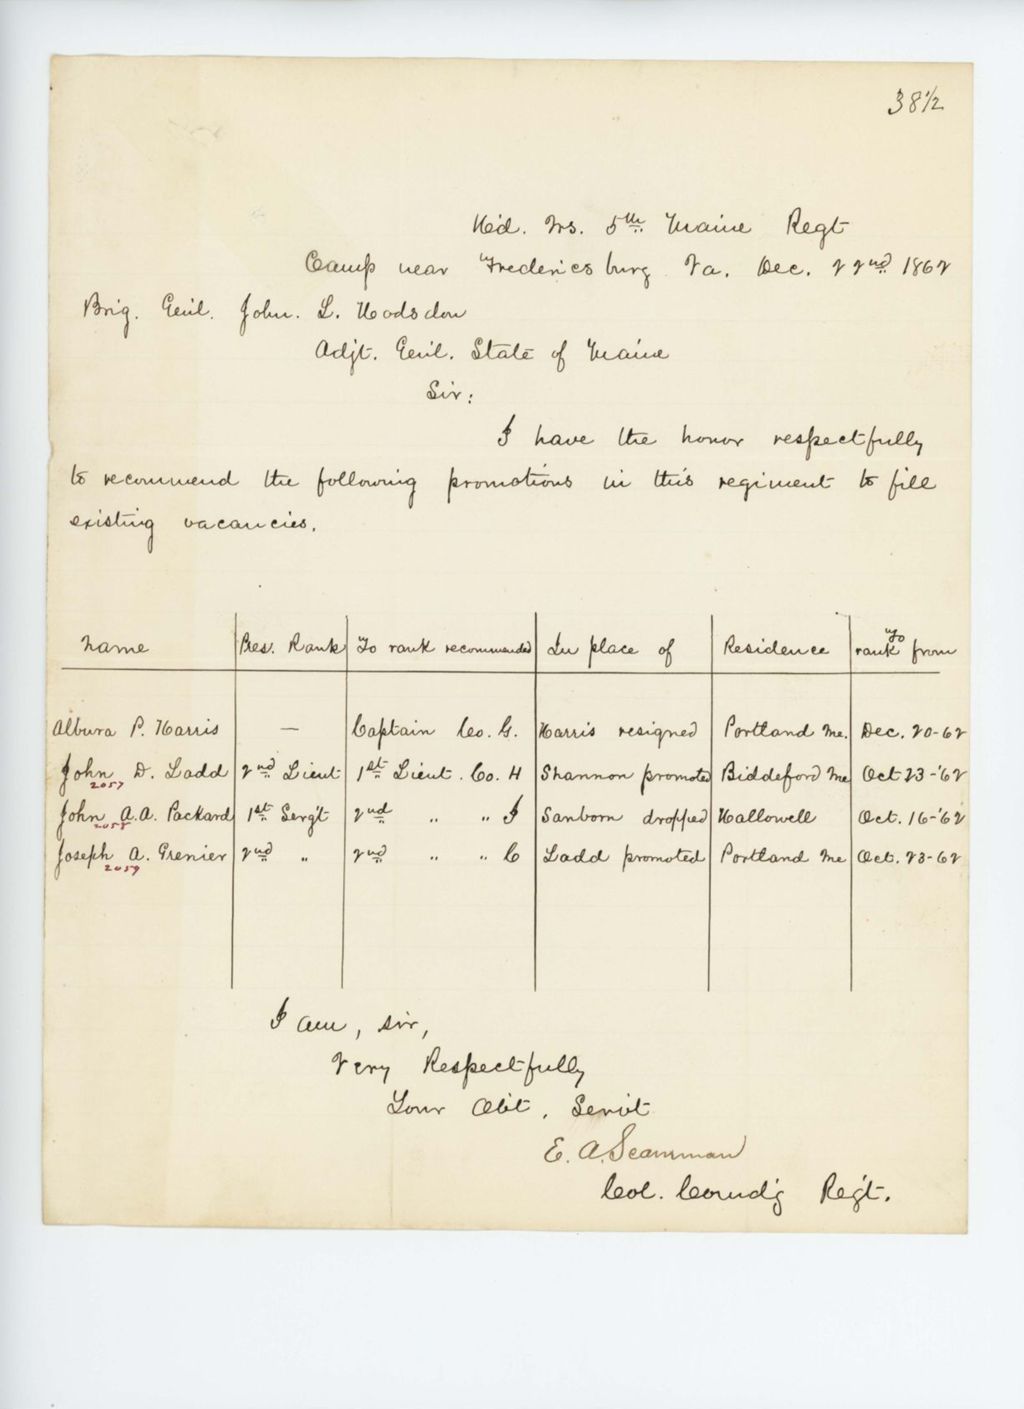 38 1/2
Hd. Qrs. 5th Maine Regt
Camp near Fredericsburg Va. Dec. 22nd 1862
Brig. Genl. John. L. Hodsdon
Adjt. Genl. State of Maine
Sir:
I have the honor respectfully
to recommend the following promotions in this regiment to fill
existing vacancies.
Name Pres. Rank To rank recommended In place of Residence To rank from
Albura P. Harris — Captain Co. G. Harris resigned Portland Me. Dec. 20-62
John D. Ladd 2nd Lieut 1st Lieut. Co. H Shannon promoted Biddeford Me Oct 23-'62
2057
John A.A. Packard 1st Sergt 2nd " " I Sanborn dropped Hallowell Oct. 16-'62
2058
Joseph A. Grenier 2nd " 2nd " " C Ladd promoted Portland Me Oct. 23-62
2059
I am, sir,
Very Respectfully
Your Obt. Servt
E. A. Scamman
Col. Comd'g Reg't.